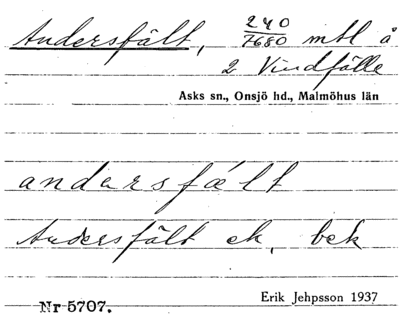 Andersfält, 240/7680 mtl å
2 Vindfälle
Asks sn., Onsjö hd., Malmöhus län
andarsfält
Andersfält ek, bek
Nr 5707.
Erik Jehpsson 1937